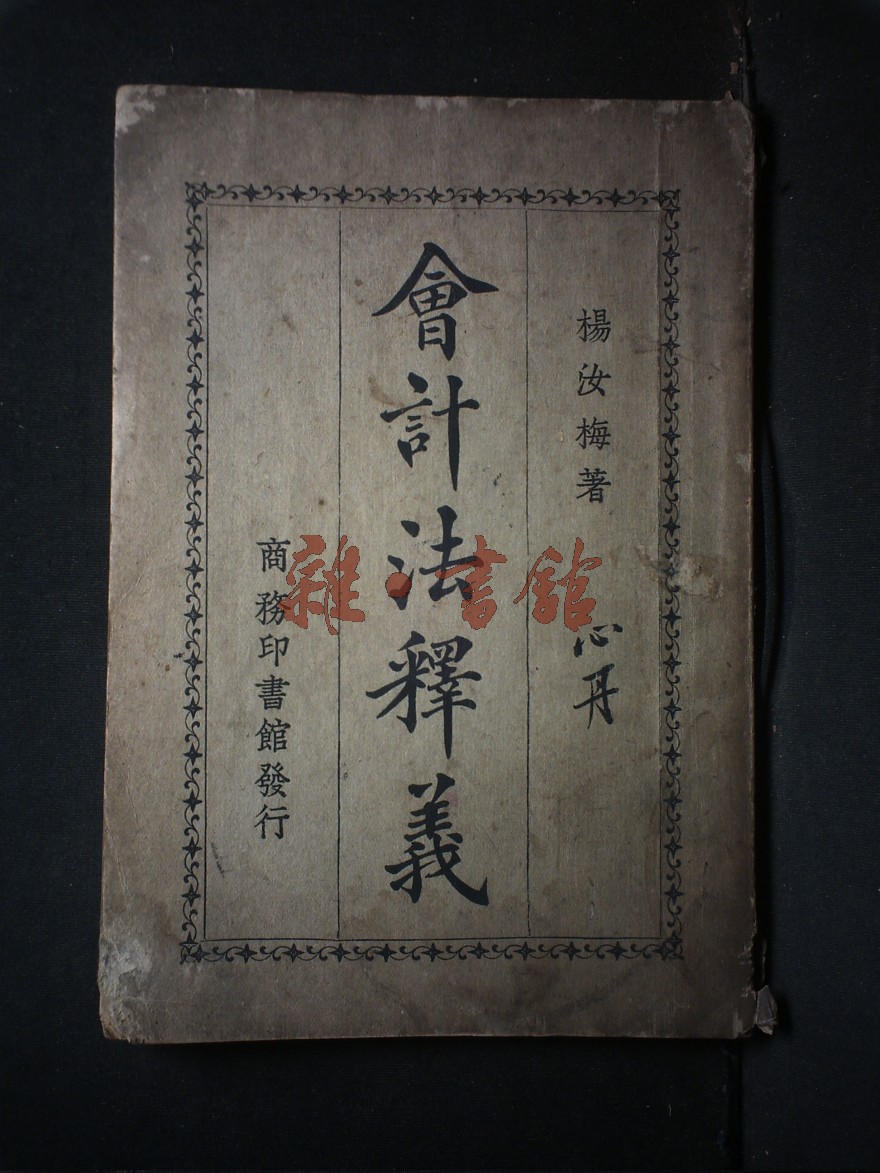 楊汝梅著
心丹
會計法釋義
商務印書館發行
雜·書館